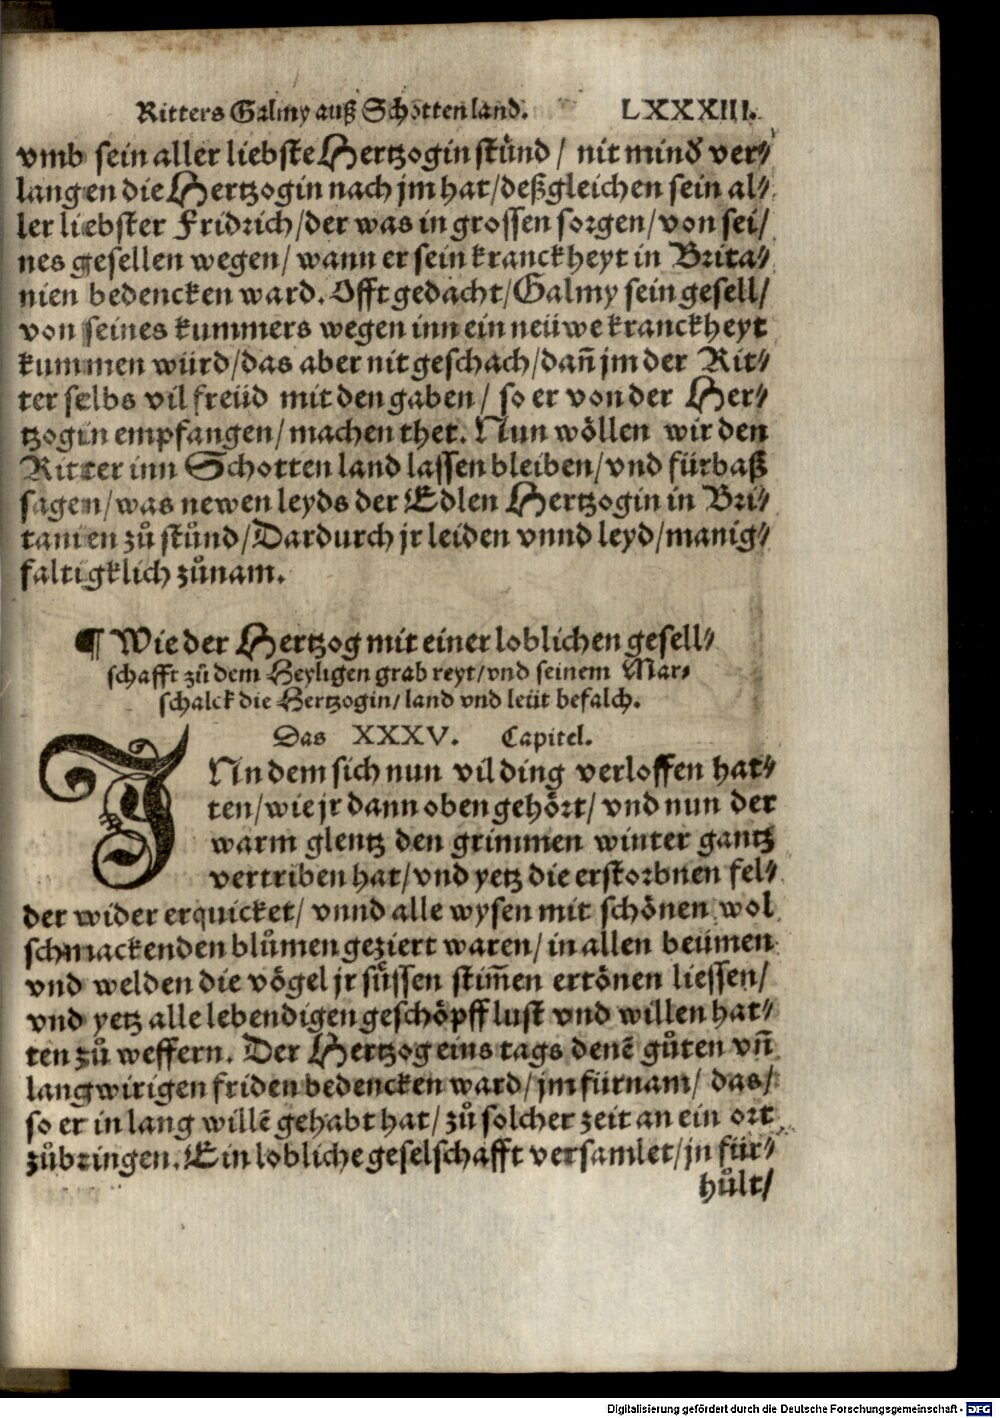 Ritters Galmy auß Schottenland. LXXXIII.
vmb sein aller liebste Hertzogin stůnd / nit mind ver⸗
langen die Hertzogin nach jm hat/deßgleichen sein al⸗
ler liebster Fridrich/der was in grossen sorgen/von sei/
nes gesellen wegen/ wann er sein kranckheyt in Brita⸗
nien bedencken ward. Offt gedacht/Galmy sein gesell/
von seines kummers wegen inn ein neüwe kranckheyt
kummen würd/das aber nit geschach/dañ jm der Rit⸗
ter selbs vil freüd mit den gaben / so er von der Her⸗
tzogin empfangen/machen thet. Nun wöllen wir den
Ritter inn Schottenland lassen bleiben/vnd fürbaß
sagen/was newen leyds der Edlen Hertzogin in Bri⸗
tanien zů stůnd/Dardurch jr leiden vnnd leyd/manig⸗
faltigklich zůnam.
¶ Wie der Hertzog mit einer loblichen gesell⸗
schafft zů dem Heyligen grab reyt/vnd seinem Mar⸗
schalck die Hertzogin/ land vnd leüt befalch.
Das XXXV. Capitel.
INn dem sich nun vil ding verloffen hat⸗
ten/wie jr dann oben gehört/ vnd nun der
warm glentz den grimmen winter gantz
vertriben hat/vnd yetz die erstorbnen fel⸗
der wider erquicket/ vnnd alle wysen mit schönen wol
schmackenden blůmen geziert waren/in allen beümen
vnd welden die vögel jr süssen stim̃en ertönen liessen/
vnd yetz alle lebendigen geschöpff lust vnd willen hat⸗
ten zů weffern. Der Hertzog eins tags denẽ gůten vñ
langwirigen friden bedencken ward/jm fürnam/ das/
so er in lang willẽ gehabt hat/ zů solcher zeit an ein ort
zůbringen. Ein lobliche geselschafft versamlet/jn für⸗
hůlt/
Digitalisierung gefördert durch die Deutsche Forschungsgemeinschaft - DFG